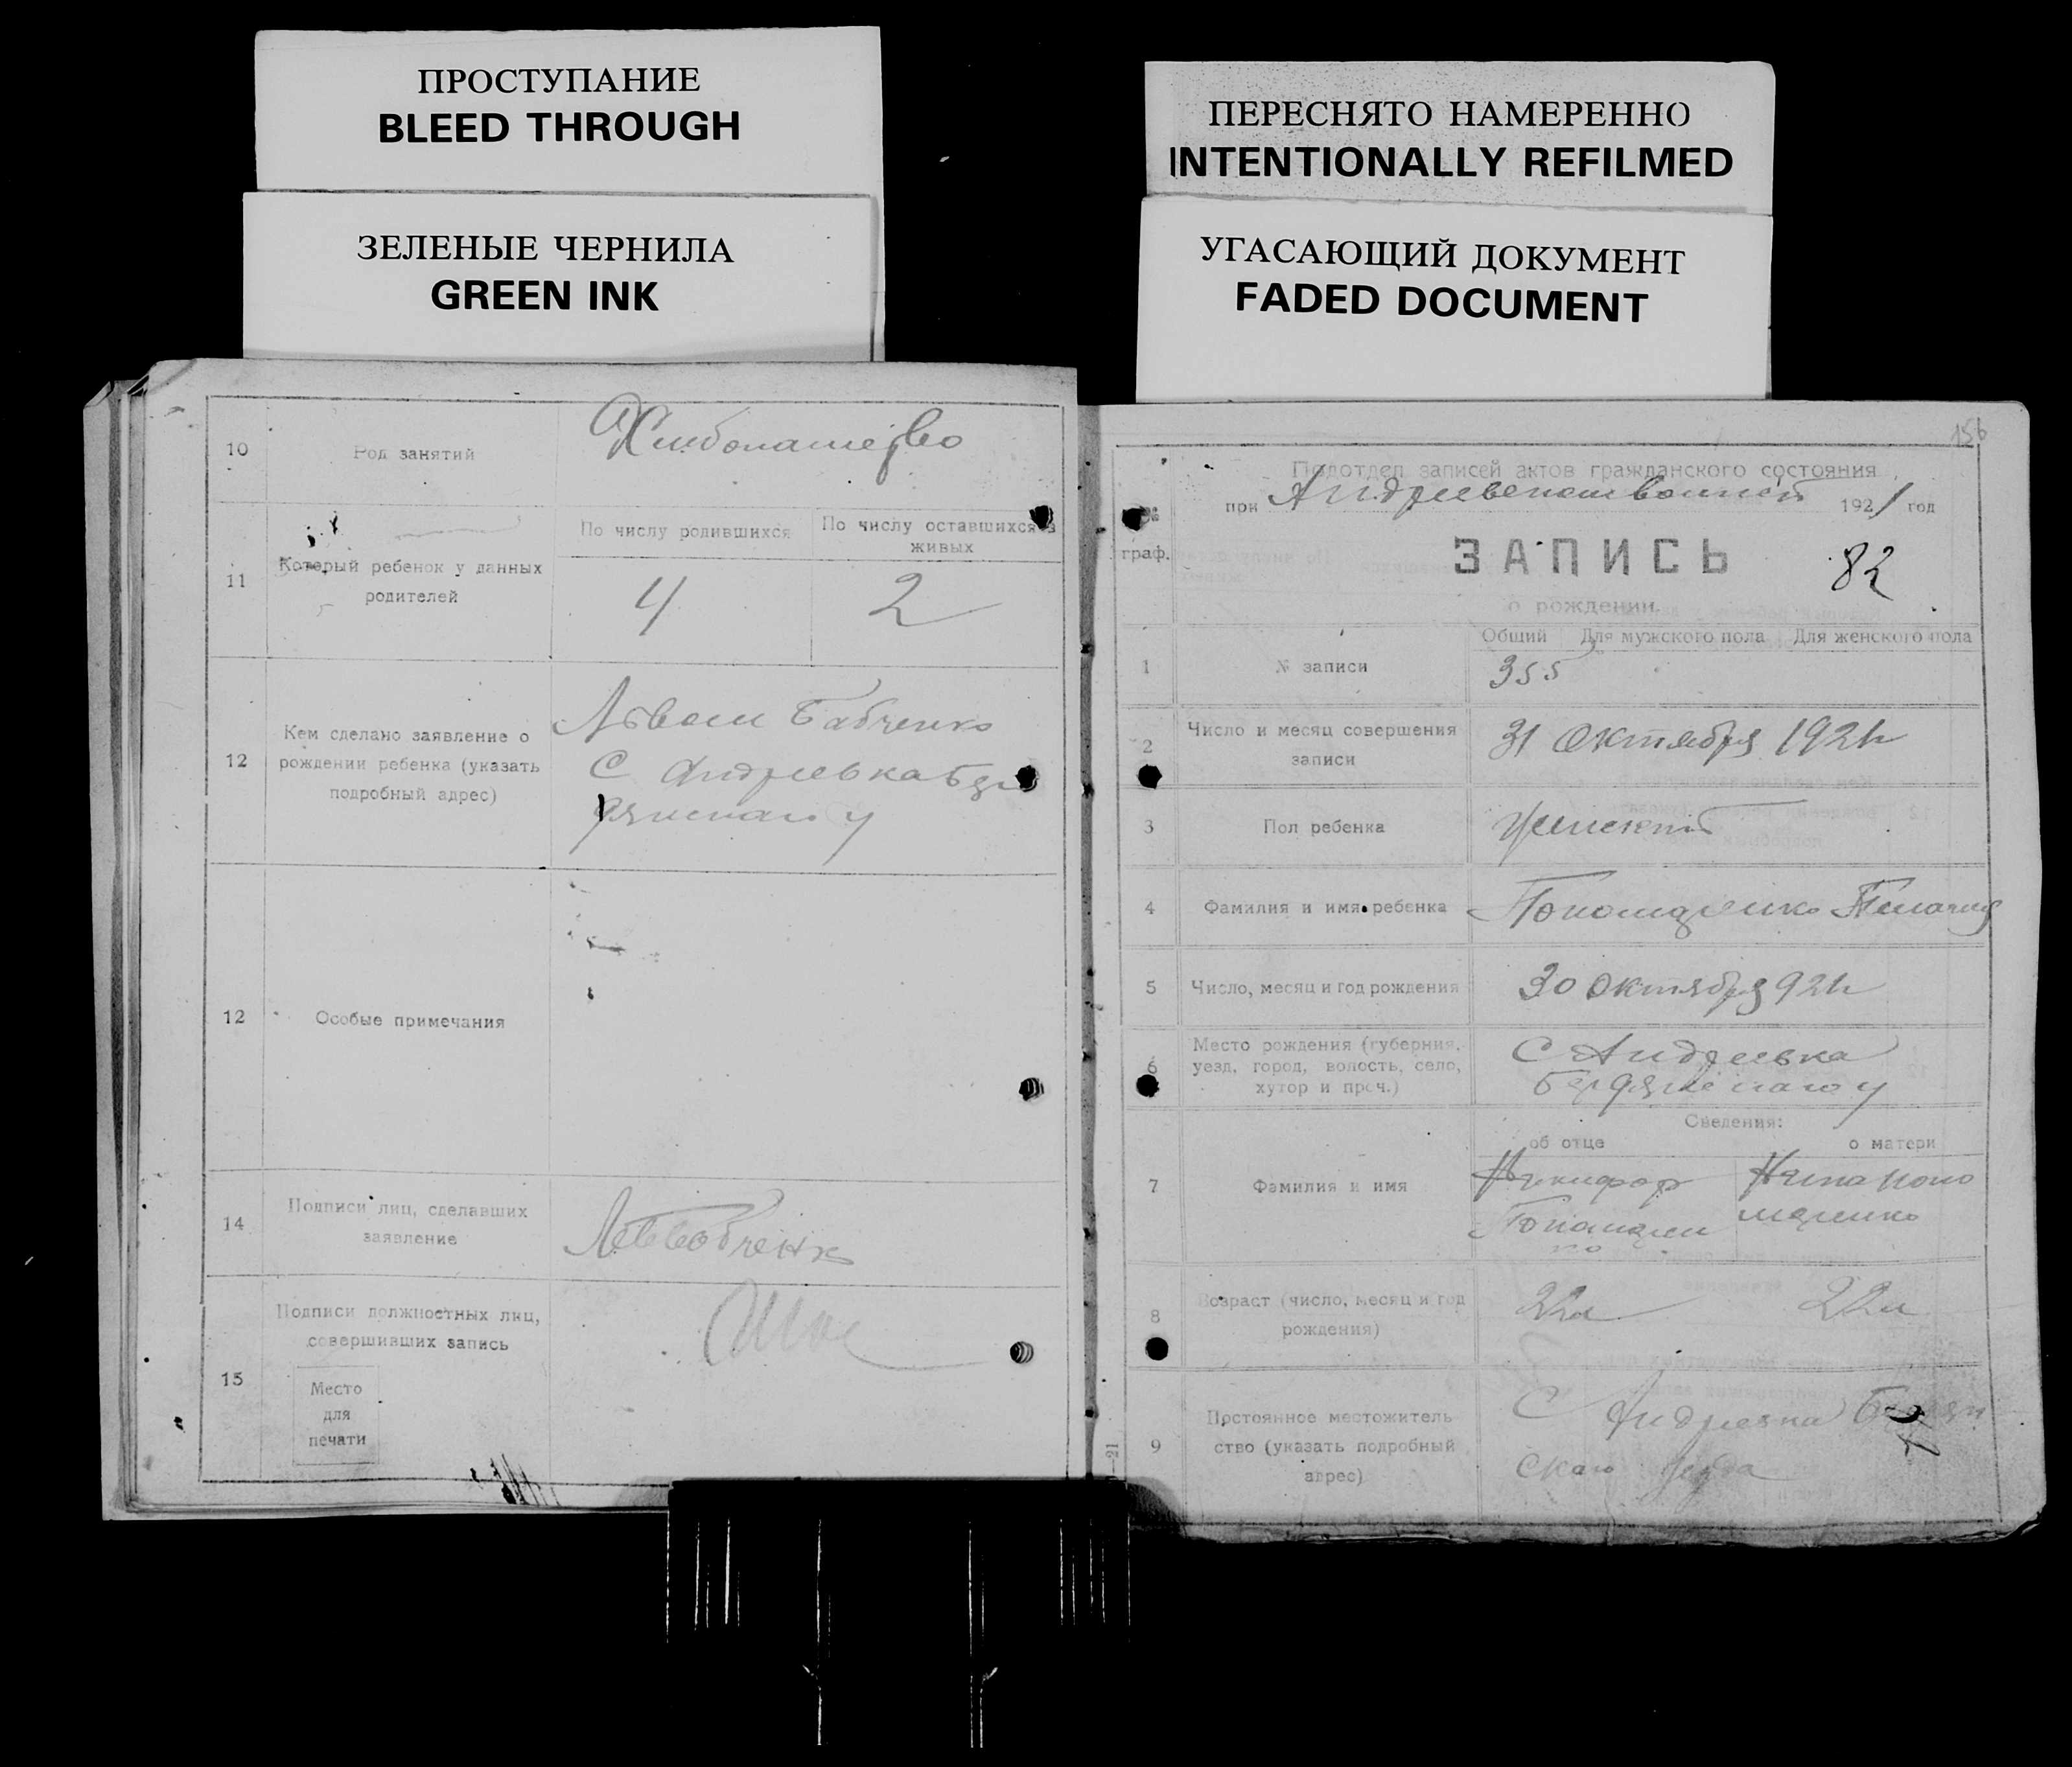 ПРОСТУПАНИЕ
BLEED THROUGH
ЗЕЛЕНЫЕ ЧЕРНИЛА
GREEN INK
ПЕРЕСНЯТО НАМЕРЕННО
INTENTIONALLY REFILMED
УГАСАЮЩИЙ ДОКУМЕНТ
FADED DOCUMENT
10
Род занятий
11
Который ребенок у данных
родителей
По числу родившихся
По числу оставшихся в
живых
4
2
12
Кем сделано заявление о
рождении ребенка (указать
подробный адрес)
Бабченко
С Андреевка
12
Особые примечания
14
Подписи лиц, сделавших
заявление
15
Подписи должностных лиц,
совершивших запись
Место
для
печати
156
Подотдел записей актов гражданского состояния
при
1921 год
№
граф.
ЗАПИСЬ
82
о рождении.
Общий
Для мужского пола
Для женского пола
1
№ записи
355
2
Число и месяц совершения
записи
31 Октября 1921
3
Пол ребенка
Женский
4
Фамилия и имя ребенка
Пономаренко Пелагия
5
Число, месяц и год рождения
30 Октября 921
6
Место рождения (губерния,
уезд, город, волость, село,
хутор и проч.)
С Андреевка
Бердянскаго у
Сведения:
об отце
о матери
7
Фамилия и имя
Никифор
Пономарен
ко
Поно
маренко
8
Возраст (число, месяц и год
рождения)
22л
22л
9
Постоянное местожитель
ство (указать подробный
адрес)
С Андреевка Бердян
скаго уезда
—21